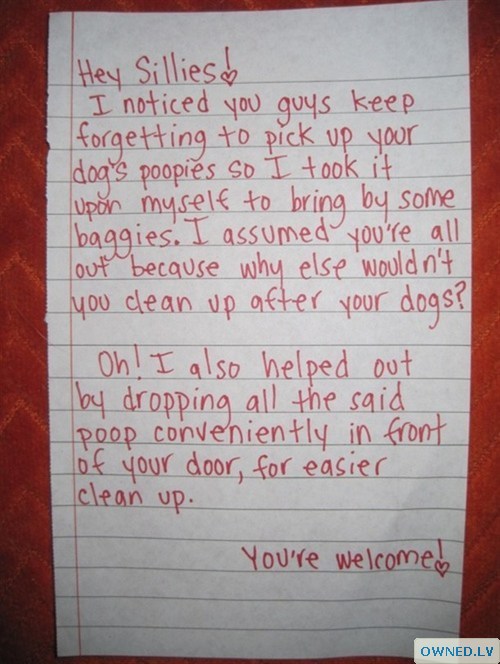 Hey Sillies!
I noticed you guys keep
forgetting to pick up your
dog's poopies so I took it
upon myself to bring by some
baggies. I assumed you're all
out because why else wouldn't
you clean up after your dogs?
Oh! I also helped out
by dropping all the said
poop conveniently in front
of your door, for easier
clean up.
You're welcome!
OWNED.LV